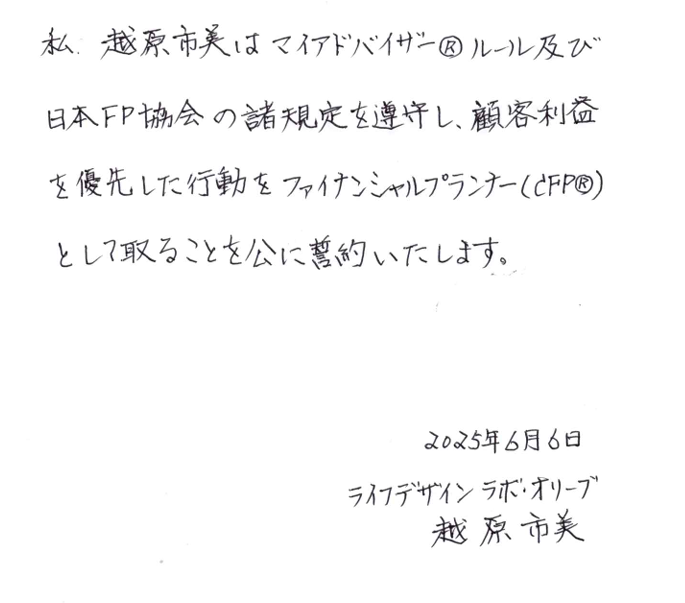 私、越原市美はマイアドバイザー®ルール及び
日本FP協会の諸規定を遵守し、顧客利益
を優先した行動をファイナンシャルプランナー(CFP®)
として取ることを公に誓約いたします。
2025年6月6日
ライフデザインラボ・オリーブ
越原市美